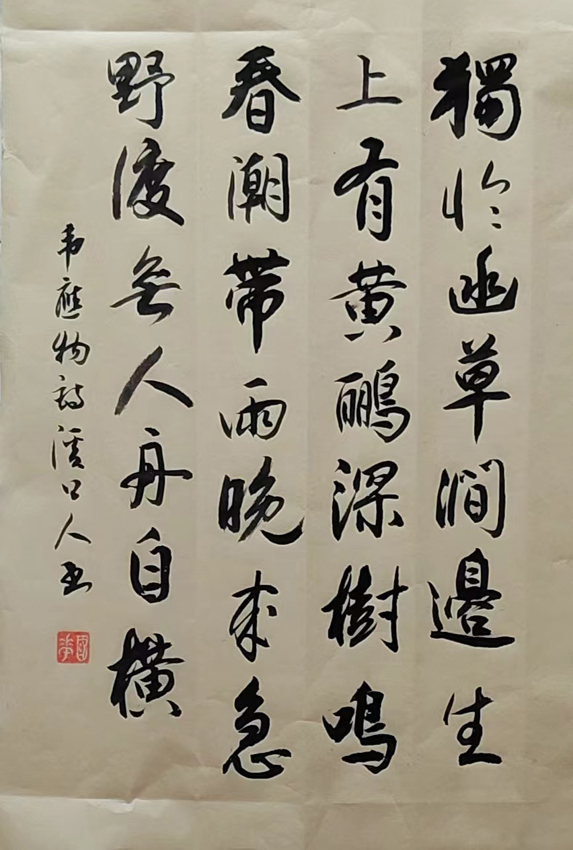 獨憐幽草澗邊生
上有黃鸝深樹鳴
春潮帶雨晚來急
野渡無人舟自橫
韦應物詩溪口人書